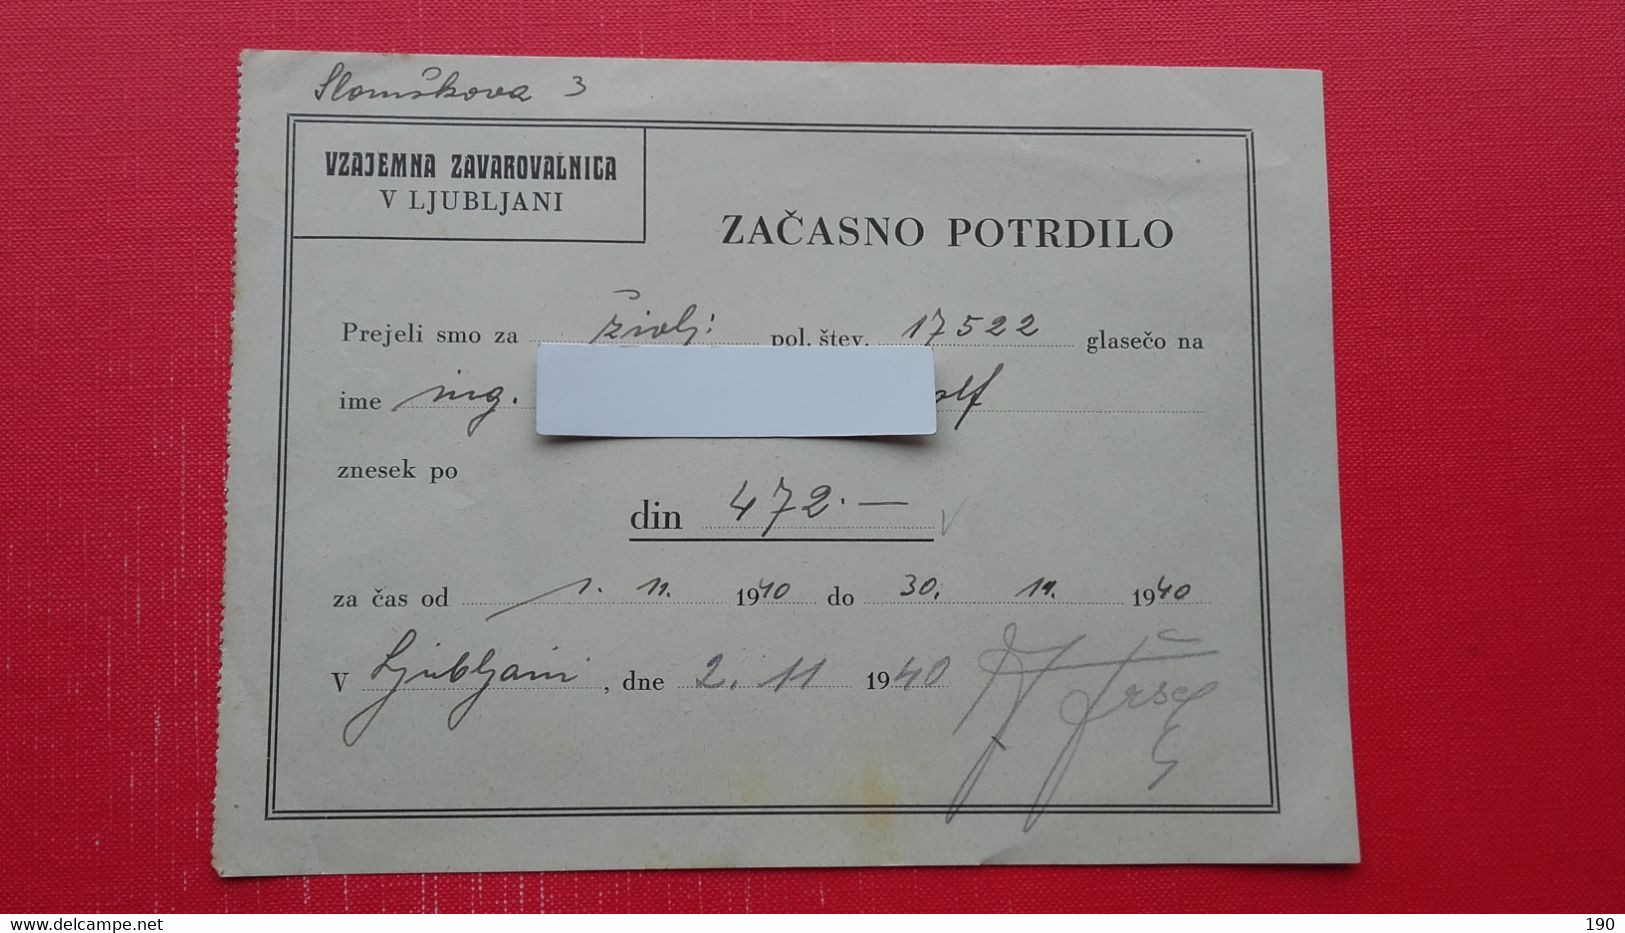 Slomškova 3
VZAJEMNA ZAVAROVALNICA
V LJUBLJANI
ZAČASNO POTRDILO
Prejeli smo za življ: pol. štev. 17522 glasečo na
ime ing. olf
znesek po
din 472.—
za čas od 1. 11. 1940 do 30. 11. 1940
V Ljubljani, dne 2. 11 1940
delcampe.net
190